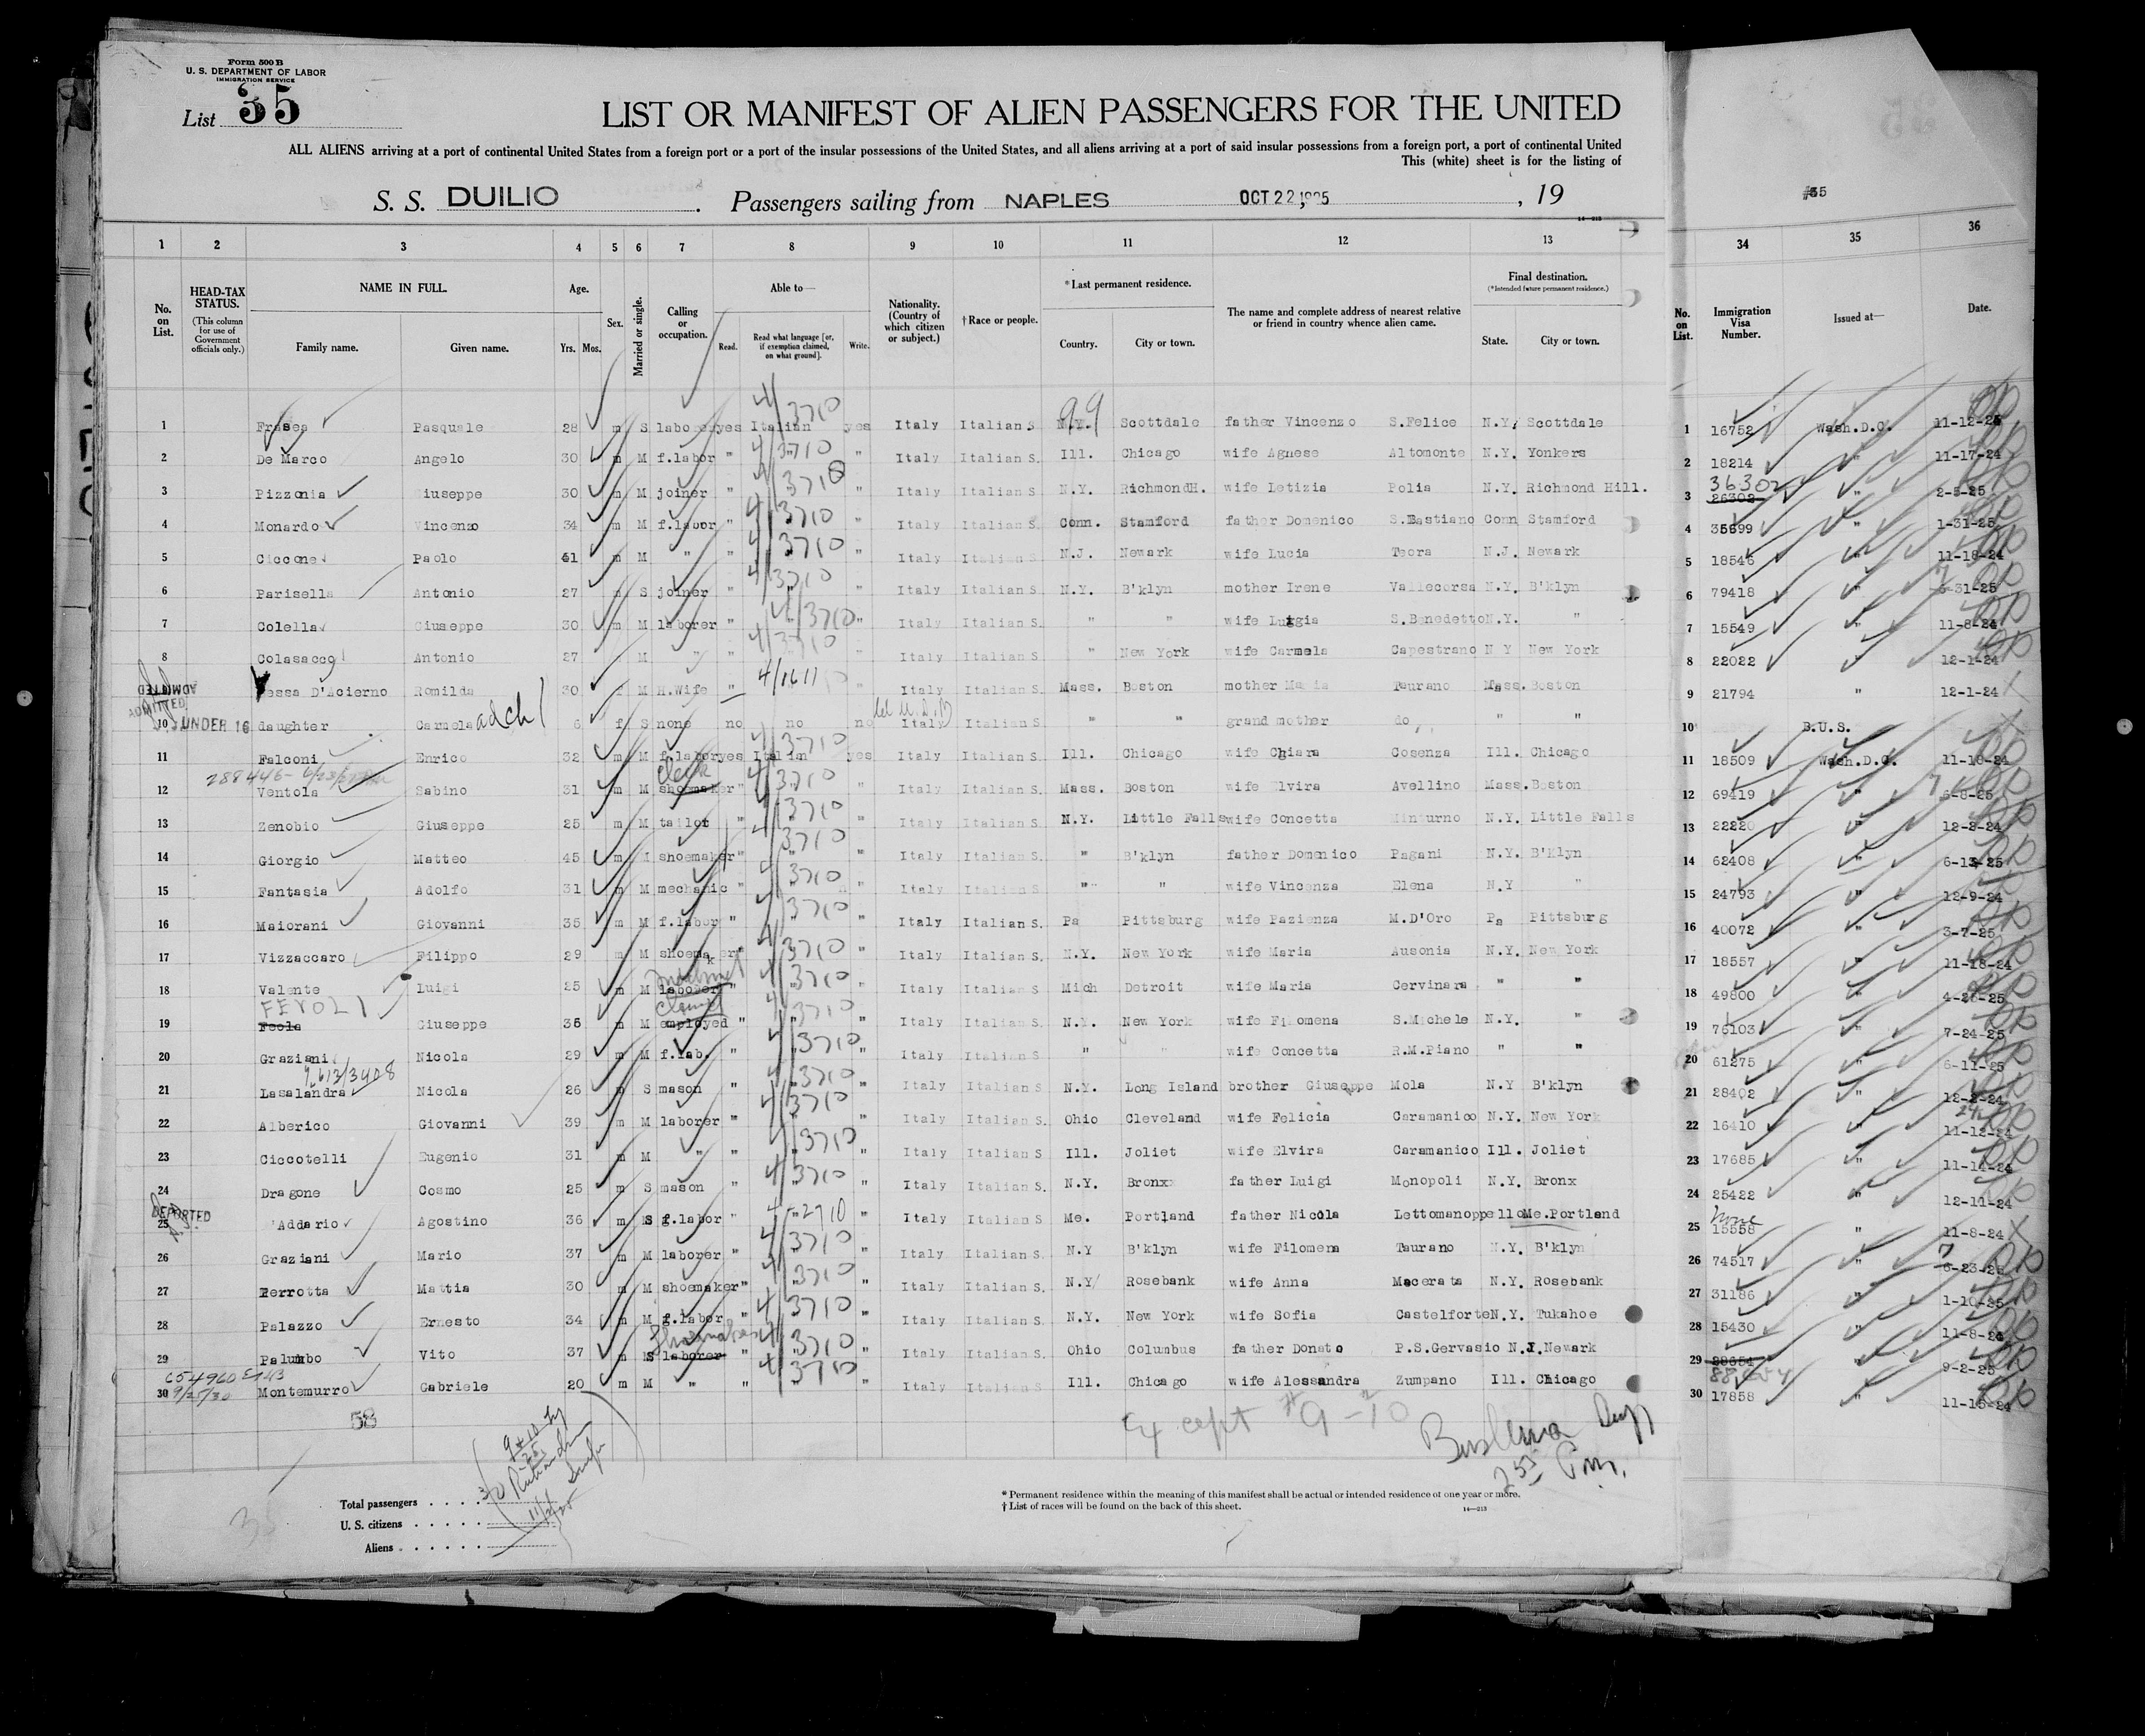 Form 500 B
U. S. DEPARTMENT OF LABOR
IMMIGRATION SERVICE
List 35
LIST OR MANIFEST OF ALIEN PASSENGERS FOR THE UNITED
ALL ALIENS arriving at a port of continental United States from a foreign port or a port of the insular possessions of the United States, and all aliens arriving at a port of said insular possessions from a foreign port, a port of continental United
This (white) sheet is for the listing of
S. S. DUILIO. Passengers sailing from NAPLES OCT 22 1925, 19
#35
1 2 3 4 5 6 7 8 9 10 11 12 13 34 35 36
No. on List. HEAD-TAX STATUS. (This column for use of Government officials only.) NAME IN FULL. Family name. Given name. Age. Yrs. Mos. Sex. Married or single. Calling or occupation. Able to— Read. Read what language [or, if exemption claimed, on what ground]. Write. Nationality. (Country of which citizen or subject.) † Race or people. * Last permanent residence. Country. City or town. The name and complete address of nearest relative or friend in country whence alien came. Final destination. (*Intended future permanent residence.) State. City or town. No. on List. Immigration Visa Number. Issued at— Date.
1 Pasquale 28 m S laborer yes Italian yes Italy Italian S N.Y. 99 Scottdale father Vincenzo S.Felice N.Y. Scottdale 1 16752 Wash.D.C. 11-12-25 4/3710
2 De Marco Angelo 30 m M f.labor " " Italy Italian S. Ill. Chicago wife Agnese Altomonte N.Y. Yonkers 2 18214 " 11-17-24 4/3710
3 Pizzonia Giuseppe 30 m M joiner " " Italy Italian S. N.Y. RichmondH. wife Letizia Polia N.Y. Richmond Hill. 3 26302 36302 " 2-5-25 4/3710
4 Monardo Vincenzo 34 m M f.labor " " Italy Italian S. Conn. Stamford father Domenico S.Bastiano Conn Stamford 4 35699 " 1-31-25 4/3710
5 Ciccone Paolo 41 m M " " " Italy Italian S N.J. Newark wife Lucia Teora N.J. Newark 5 18546 " 11-18-24 4/3710
6 Parisella Antonio 27 m S joiner " " Italy Italian S. N.Y. B'klyn mother Irene Vallecorsa N.Y. B'klyn 6 79418 " 31-25 4/3710
7 Colella Giuseppe 30 m M laborer " " Italy Italian S. " " wife Luigia S.Benedetto N.Y. " 7 15549 " 11-8-24 4/3710
8 Colasacco Antonio 27 M " " Italy Italian S. " New York wife Carmela Capestrano N Y New York 8 22022 " 12-1-24 4/3710
ADMITTED
9 D'Acierno Romilda 30 f M H.Wife " 4/1611 " Italy Italian S. Mass. Boston mother Maria Taurano Mass. Boston 9 21794 " 12-1-24
ADMITTED
10 UNDER 16 daughter Carmela 6 f S none no no no Italy Italian S. " " grand mother do, " " 10 B.U.S.
11 Falconi Enrico 32 m M f.labor yes Italian yes Italy Italian S. Ill. Chicago wife Chiara Cosenza Ill. Chicago 11 18509 Wash.D.C. 11-18-24 4/3710
288446-
12 Ventola Sabino 31 m M shoemaker clerk " " Italy Italian S. Mass. Boston wife Elvira Avellino Mass. Boston 12 69419 " 6-8-25 4/3710
13 Zenobio Giuseppe 25 m M tailor " " Italy Italian S. N.Y. Little Falls wife Concetta Minturno N.Y. Little Falls 13 22220 " 12-2-24 4/3710
14 Giorgio Matteo 45 m M shoemaker " " Italy Italian S. " B'klyn father Domenico Pagani N.Y. B'Klyn 14 62408 " 6-13-25 4/3710
15 Fantasia Adolfo 31 m M mechanic " " Italy Italian S. " " wife Vincenza Elena N.Y " 15 24793 " 12-9-24 4/3710
16 Maiorani Giovanni 35 m M f.labor " " Italy Italian S. Pa Pittsburg wife Pazienza M.D'Oro Pa Pittsburg 16 40072 " 3-7-25 4/3710
17 Vizzaccaro Filippo 29 m M shoemaker " " Italy Italian S. N.Y. New York wife Maria Ausonia N.Y. New York 17 18557 " 11-18-24 4/3710
18 Valente Luigi 25 m M laborer " " Italy Italian S Mich Detroit wife Maria Cervinara " " 18 49800 " 4-25 4/3710
FEVOLI
19 Feola Giuseppe 36 m M employed " " Italy Italian S. N.Y. New York wife Filomena S.Michele N.Y. " 19 76103 " 7-24-25 4/3710
20 Graziani Nicola 29 m M f.lab. " " Italy Italian S. " " wife Concetta R.M.Piano " " 20 61275 " 6-11-25 4/3710
21 Lasalandra Nicola 26 m S mason " " Italy Italian S N.Y. Long Island brother Giuseppe Mola N.Y B'klyn 21 28402 " 12-2-24 4/3710
22 Alberico Giovanni 39 m M laborer " " Italy Italian S. Ohio Cleveland wife Felicia Caramanico N.Y. New York 22 16410 " 11-12-24 4/3710
23 Ciccotelli Eugenio 31 m M " " " Italy Italian S Ill. Joliet wife Elvira Caramanico Ill. Joliet 23 17685 " 11-14-24 4/3710
24 Dragone Cosmo 25 m S mason " " Italy Italian S. N.Y. Bronx father Luigi Monopoli N.Y. Bronx 24 25422 " 12-11-24 4/3710
DEPORTED
25 D'Addario Agostino 36 m S f.labor " " Italy Italian S Me. Portland father Nicola Lettomanoppello Me. Portland 25 15558 none " 11-8-24
26 Graziani Mario 37 m M laborer " " Italy Italian S. N.Y B'klyn wife Filomena Taurano N.Y. B'klyn 26 74517 " 23-25 4/3710
27 Perrotta Mattia 30 m M shoemaker " " Italy Italian S. N.Y/ Rosebank wife Anna Macerata N.Y. Rosebank 27 31186 " 1-10-25 4/3710
28 Palazzo Ernesto 34 m M f.labor " " Italy Italian S. N.Y. New York wife Sofia Castelforte N.Y. Tukahoe 28 15430 " 11-8-24 4/3710
29 Palumbo Vito 37 m S laborer Shoemaker " " Italy Italian S. Ohio Columbus father Donato P.S.Gervasio N.J. Newark 29 88654 " 9-2-25 4/3710
654960
30 9/25/30 Montemurro Gabriele 20 m M " " " Italy Italian S. Ill. Chicago wife Alessandra Zumpano Ill. Chicago 30 17858 " 11-15-24 4/3710
58
Except #9-10
2 55 Pm.
Total passengers
U. S. citizens
Aliens
35
* Permanent residence within the meaning of this manifest shall be actual or intended residence of one year or more.
† List of races will be found on the back of this sheet.
14—213